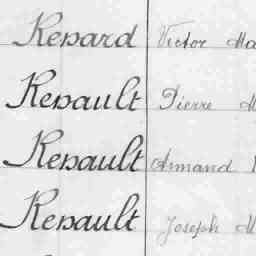 Renard Victor Ma
Renault Pierre M
Renault Armand
Renault Joseph M